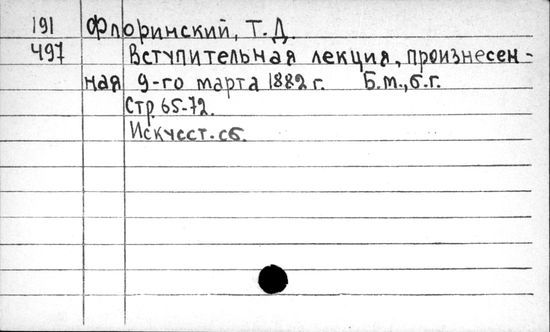 191 Флоринский, Т.Д.
497 Вступительная лекция, произнесен-
ная 9-го марта 1882 г. Б.м., б.г.
Стр. 65-72.
Искусст. сб.